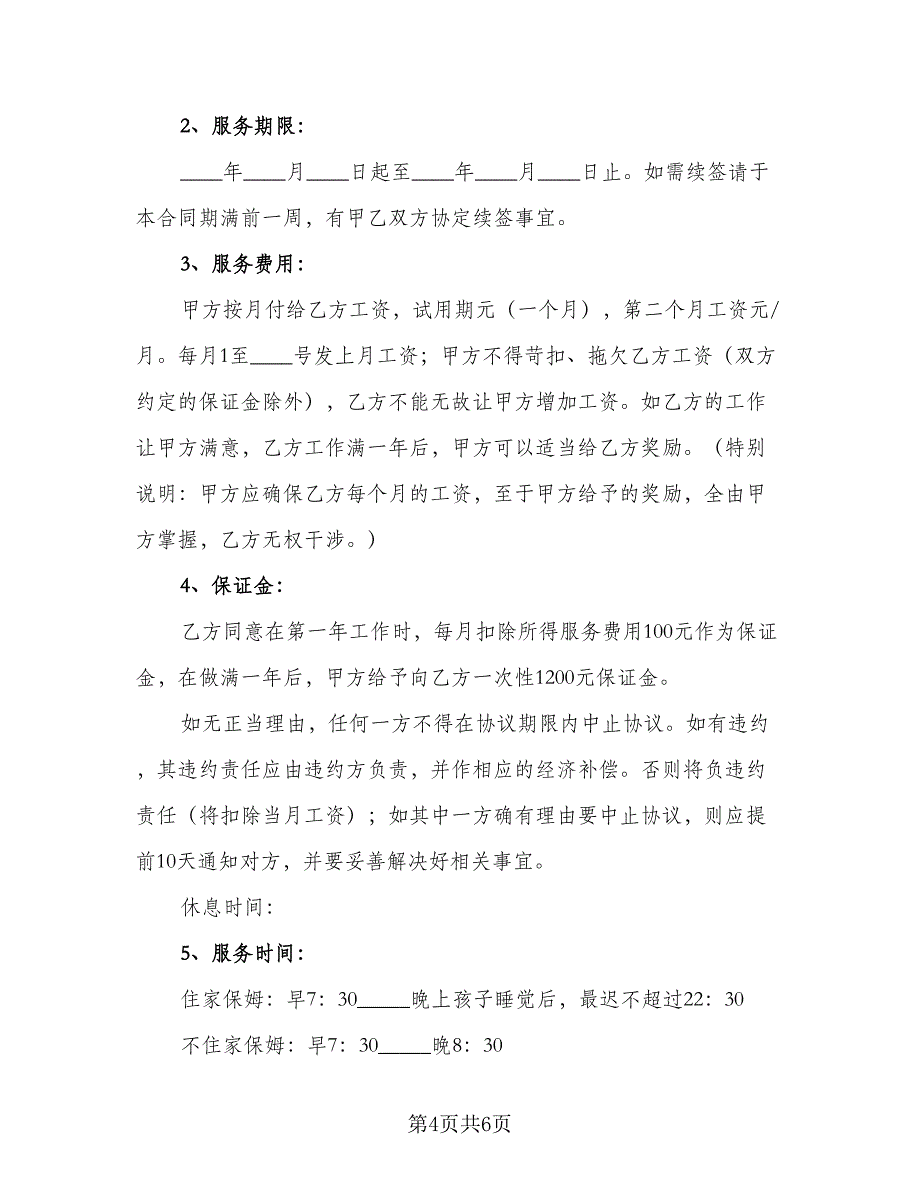 2、服务期限：
____年____月____日起至____年____月____日止。如需续签请于
本合同期满前一周，有甲乙双方协定续签事宜。
3、服务费用：
甲方按月付给乙方工资，试用期元（一个月），第二个月工资元/
月。每月1至____号发上月工资；甲方不得苛扣、拖欠乙方工资（双方
约定的保证金除外），乙方不能无故让甲方增加工资。如乙方的工作
让甲方满意，乙方工作满一年后，甲方可以适当给乙方奖励。（特别
说明：甲方应确保乙方每个月的工资，至于甲方给予的奖励，全由甲
方掌握，乙方无权干涉。）
4、保证金：
乙方同意在第一年工作时，每月扣除所得服务费用100元作为保证
金，在做满一年后，甲方给予向乙方一次性1200元保证金。
如无正当理由，任何一方不得在协议期限内中止协议。如有违约
，其违约责任应由违约方负责，并作相应的经济补偿。否则将负违约
责任（将扣除当月工资）；如其中一方确有理由要中止协议，则应提
前10天通知对方，并要妥善解决好相关事宜。
休息时间：
5、服务时间：
住家保姆：早7：30_____晚上孩子睡觉后，最迟不超过22：30
不住家保姆：早7：30_____晚8：30
第4页共6页